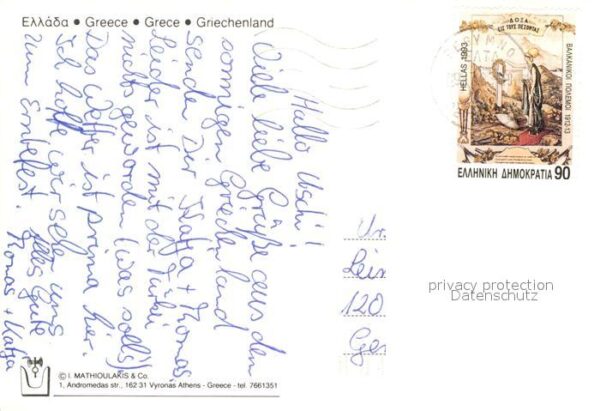 Ελλάδα • Greece • Grece • Griechenland
Hallo Uschi!
Viele liebe Grüße aus dem
sonnigen Griechenland
senden Dir Katja + Thomas.
Leider ist mit der Türkei
nichts geworden (was soll's)
Das Wetter ist prima hier.
Ich hoffe wir sehn uns
zum Erntefest! Alles Gute
Thomas + Katja
ΔΟΞΑ
ΕΙΣ ΤΟΥΣ ΠΕΣΟΝΤΑΣ
HELLAS 1993
ΒΑΛΚΑΝΙΚΟΙ ΠΟΛΕΜΟΙ 1912-13
ΕΛΛΗΝΙΚΗ ΔΗΜΟΚΡΑΤΙΑ 90
120
privacy protection
Datenschutz
© I. MATHIOULAKIS & Co.
1, Andromedas str., 162 31 Vyronas Athens - Greece - tel. 7661351